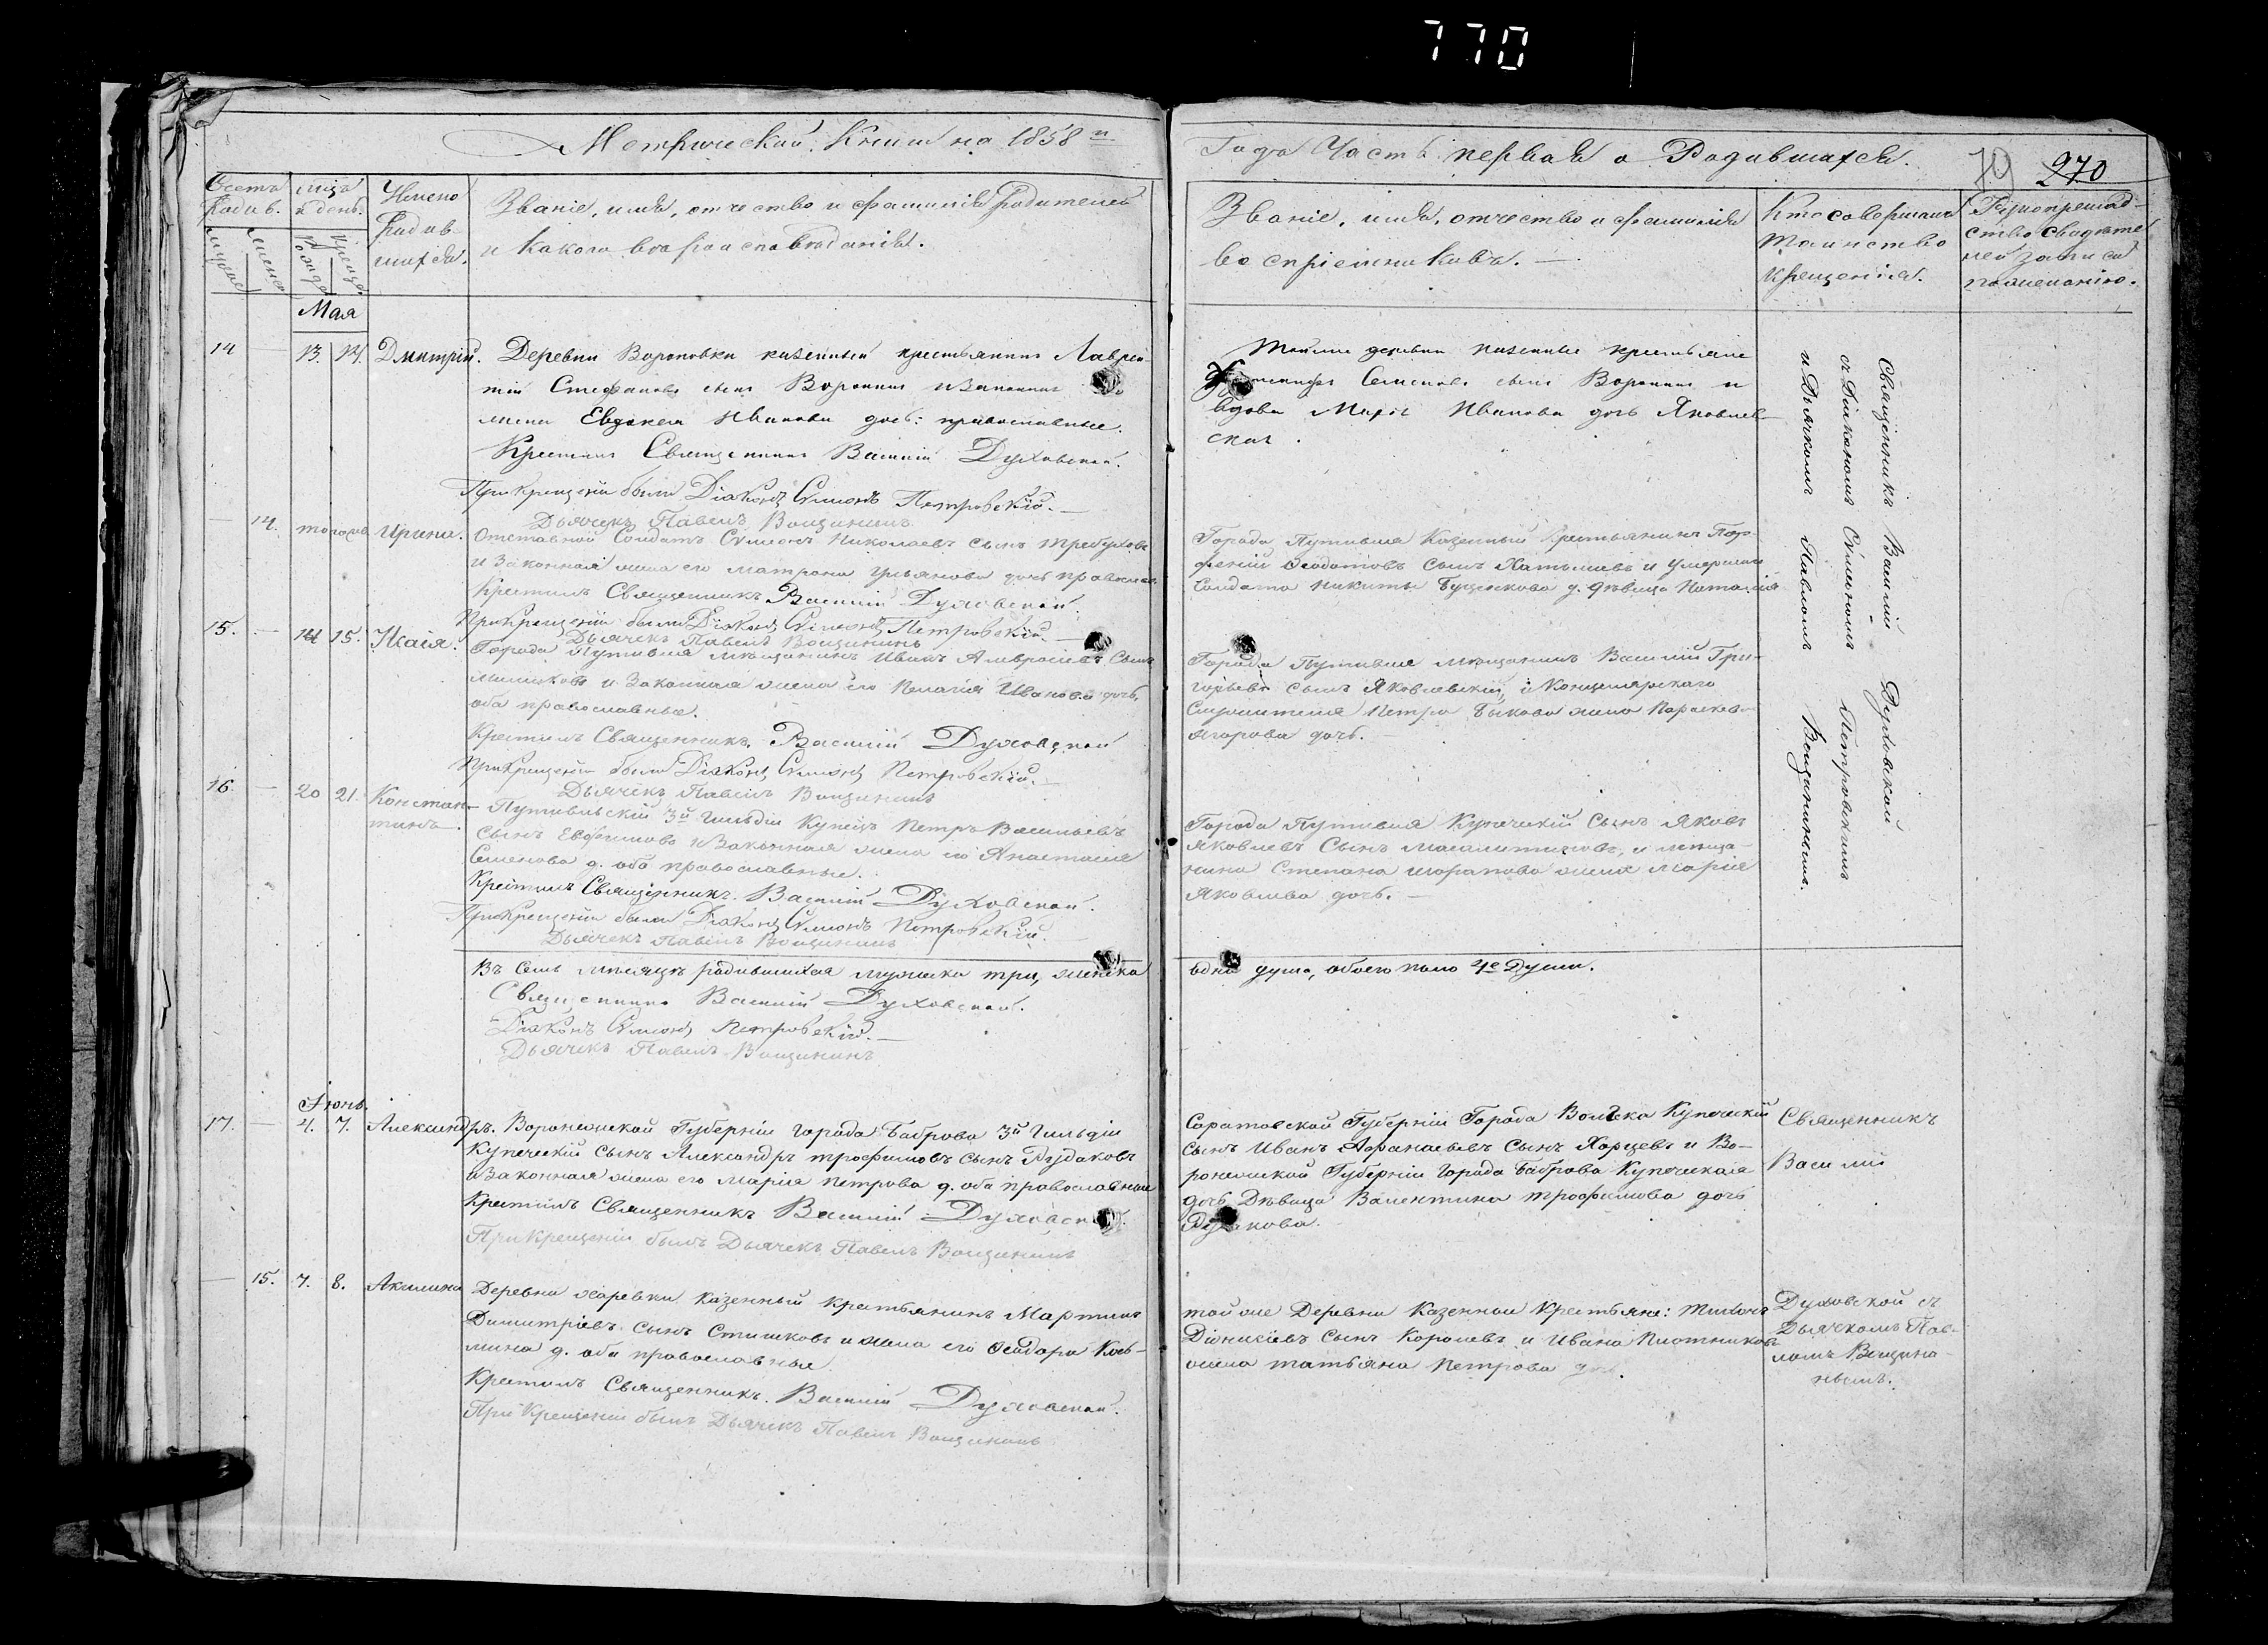 770
Метрической Книги на 1858й
Года Часть первая о Родившихся.
79 270
Счетъ родив.
мужеска
женска
Мцъ и день.
рожде
креще
Имена
Родив-
шихся.
Званіе, имя, отчество и фамилія родителей
и какого вѣроисповѣданія.
Званіе, имя, отчество и фамилія
воспріемниковъ.
Кто совершалъ
таинство
крещенія.
Рукоприклад-
ство свидѣте
лей записи
по желанію.
Мая
14 13. 14. Дмитрій. Деревни Вороновки казенный крестьянинъ Лаврен-
тій Стефановъ сынъ Воронинъ и законная
жена Евдокея Иванова доч: православные.
Крестилъ Священникъ Василій Духовской.
При крещеніи были Діаконъ Сѵмеонъ Петровскій.
Дьячекъ Павелъ Вощининъ
тойже деревни казенные крестьяне
Семеновъ сынъ Воронинъ и
вдова Марія Иванова дочь Яковлев-
ская.
Священникъ Василій Духовской
съ Діакономъ Сѵмеономъ Петровскимъ
и Дьячкомъ Павломъ Вощининымъ.
14. того же Ирина. Отставной Солдатъ Сѵмеонъ Николаевъ сынъ Требуховъ
и законная жена его Матрона Ульянова дочь православ.
Крестилъ Священникъ Василій Духовской.
При крещеніи были Діаконъ Сѵмеонъ Петровскій.
Дьячекъ Павелъ Вощининъ
Города Путивля Казенный Крестьянинъ Пор-
фирій Ѳеодотовъ сынъ Латышевъ и умершаго
солдата Никиты Бущенкова д. дѣвица Наталія
15. 14 15. Исаія. Города Путивля мѣщанинъ Иванъ Амвросіевъ Сынъ
и законная жена его Пелагія Иванова дочь,
оба православные.
Крестилъ Священникъ Василій Духовской
При крещеніи были Діаконъ Сѵмеонъ Петровскій.
Дьячекъ Павелъ Вощининъ
Города Путивля мѣщанинъ Василій Гри-
горьевъ сынъ Яковлевскій, и Канцелярскаго
служителя Петра Быкова жена Параскева
Егорова дочь.
16. 20 21. Констан-
тинъ. Путивльскій 3й гильдіи Купецъ Петръ Васильевъ
сынъ Евфимовъ и законная жена его Анастасія
Семенова д. оба православные.
Крестилъ Священникъ Василій Духовской.
При крещеніи были Діаконъ Сѵмеонъ Петровскій.
Дьячекъ Павелъ Вощининъ
Города Путивля Купеческій сынъ Яковъ
Яковлевъ Сынъ Маклитиновъ, и мѣща-
нина Степана Шарапова жена Марія
Яковлева дочь.
Въ семъ мѣсяцѣ родившихся мужеска три, женска
одна душа, обоего пола 4е Души.
Священникъ Василій Духовской.
Діаконъ Сѵмеонъ Петровскій.
Дьячекъ Павелъ Вощининъ
Іюнь.
17. 4. 7. Александръ. Воронежской Губерніи города Боброва 3й Гильдіи
Купеческій сынъ Александръ Трофимовъ сынъ Рудаковъ
и законная жена его Марія Петрова д. оба православные
Крестилъ Священникъ Василій Духовской.
При крещеніи былъ Дьячекъ Павелъ Вощининъ
Саратовской Губерніи Города Вольска Купеческій
сынъ Иванъ Афанасьевъ Сынъ Хорцевъ и Во-
ронежской Губерніи города Боброва Купеческая
дочь Дѣвица Валентина Трофимова дочь
Рудакова.
Священникъ
Василій
15. 7. 8. Акилина Деревни казенный крестьянинъ Мартинъ
Димитріевъ сынъ Стишковъ и жена его Ѳеодора Кось-
мина д. оба православные
Крестилъ Священникъ Василій Духовской.
При крещеніи былъ Дьячекъ Павелъ Вощининъ
той же Деревни казенные крестьяне:
Діонисіевъ сынъ Королевъ и Ивана Плотникова
жена Татьяна Петрова доч.
Духовской съ
Дьячкомъ Пав-
ломъ Вощини-
нымъ.